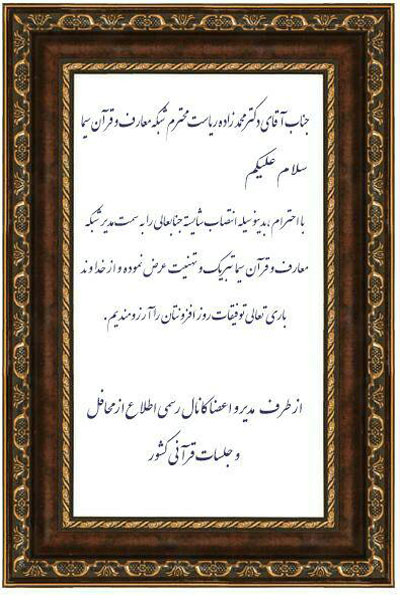 جناب آقای دکتر محمدزاده ریاست محترم شبکه معارف و قرآن سیما
سلام علیکم
با احترام ، بدینوسیله انتصاب شایسته جنابعالی را به سمت مدیر شبکه
معارف و قرآن سیما تبریک و تهنیت عرض نموده و از خداوند
باری تعالی توفیقات روز افزونتان را آرزومندیم.
از طرف مدیر و اعضا کانال رسمی اطلاع از محافل
و جلسات قرآنی کشور